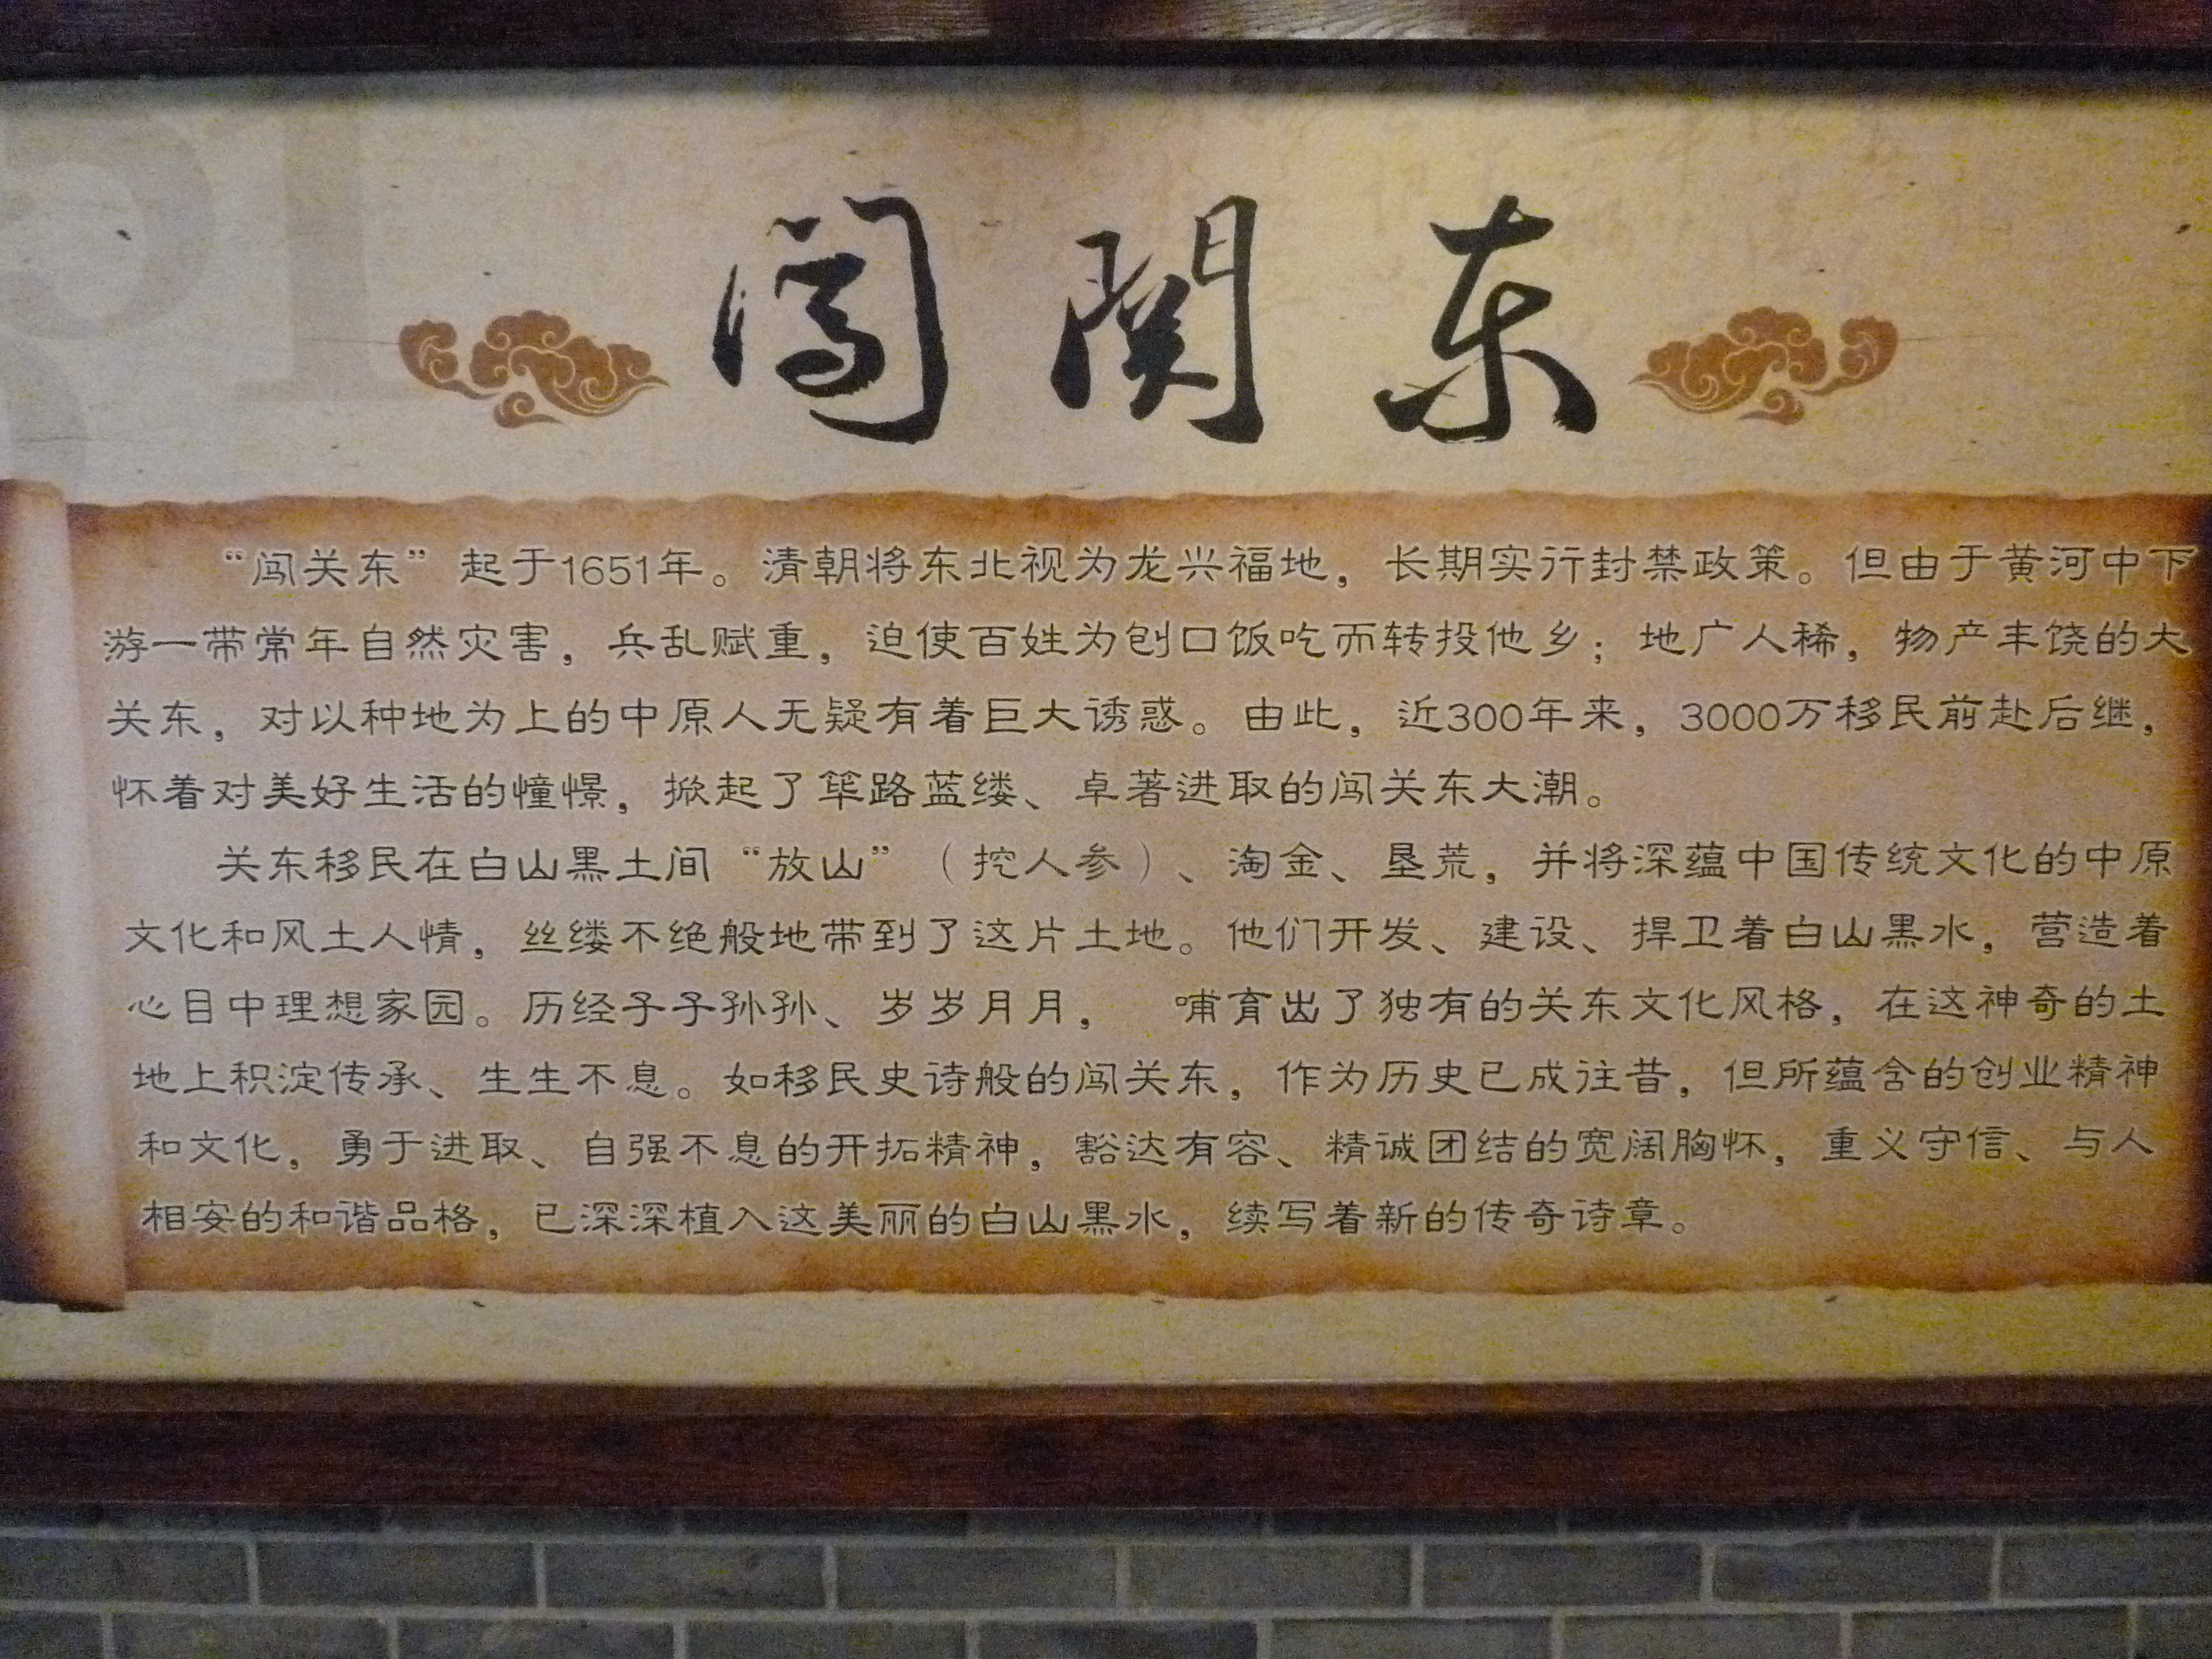 闯关东
“闯关东”起于1651年。清朝将东北视为龙兴福地，长期实行封禁政策。但由于黄河中下
游一带常年自然灾害，兵乱赋重，迫使百姓为刨口饭吃而转投他乡；地广人稀，物产丰饶的大
关东，对以种地为上的中原人无疑有着巨大诱惑。由此，近300年来，3000万移民前赴后继，
怀着对美好生活的憧憬，掀起了筚路蓝缕、卓著进取的闯关东大潮。
关东移民在白山黑土间“放山”（挖人参）、淘金、垦荒，并将深蕴中国传统文化的中原
文化和风土人情，丝缕不绝般地带到了这片土地。他们开发、建设、捍卫着白山黑水，营造着
心目中理想家园。历经子子孙孙、岁岁月月， 哺育出了独有的关东文化风格，在这神奇的土
地上积淀传承、生生不息。如移民史诗般的闯关东，作为历史已成往昔，但所蕴含的创业精神
和文化，勇于进取、自强不息的开拓精神，豁达有容、精诚团结的宽阔胸怀，重义守信、与人
相安的和谐品格，已深深植入这美丽的白山黑水，续写着新的传奇诗章。